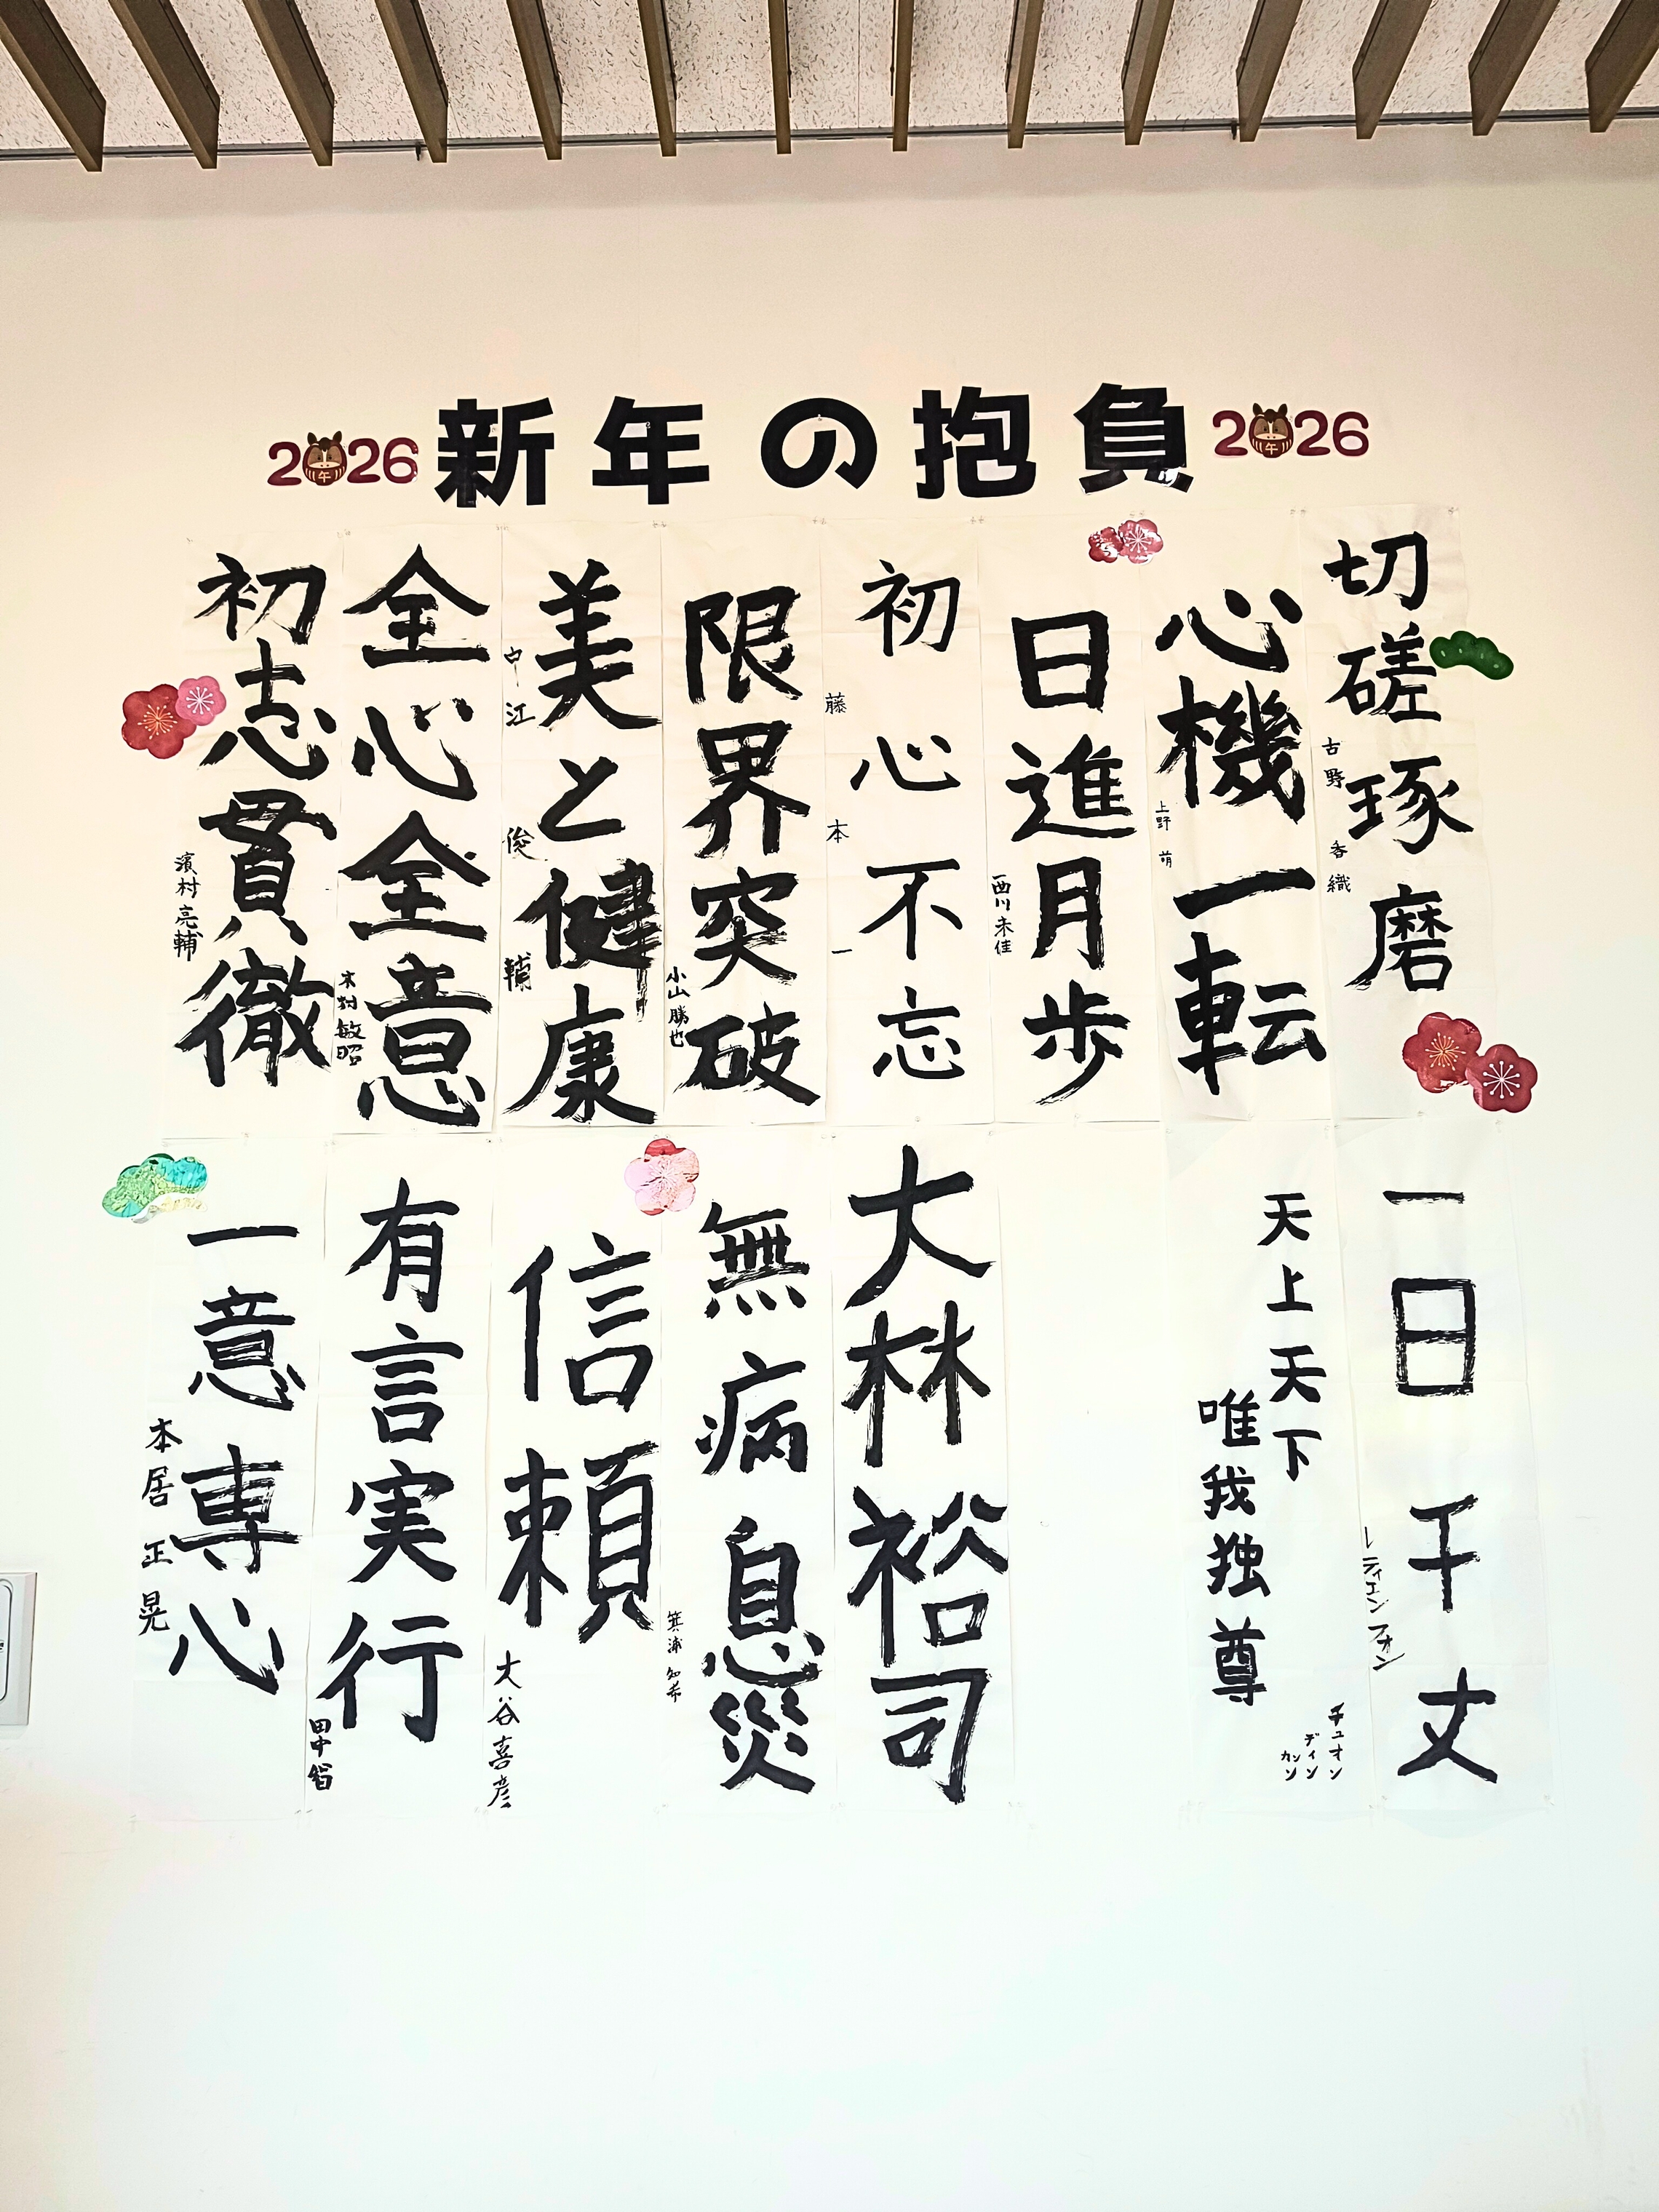 2026 新年の抱負 2026
午
午
切磋琢磨
古野 香織
心機一転
上野 萌
日進月歩
西川未佳
初心不忘
藤本一
限界突破
小山勝也
美と健康
中江 俊輔
全心全意
木村敏昭
初志貫徹
濱村亮輔
一日千丈
レティエンフォン
天上天下
唯我独尊
チュオン
ディン
カンン
大林裕司
無病息災
箕浦 知希
信頼
大谷喜彦
有言実行
田中
一意専心
本居正晃